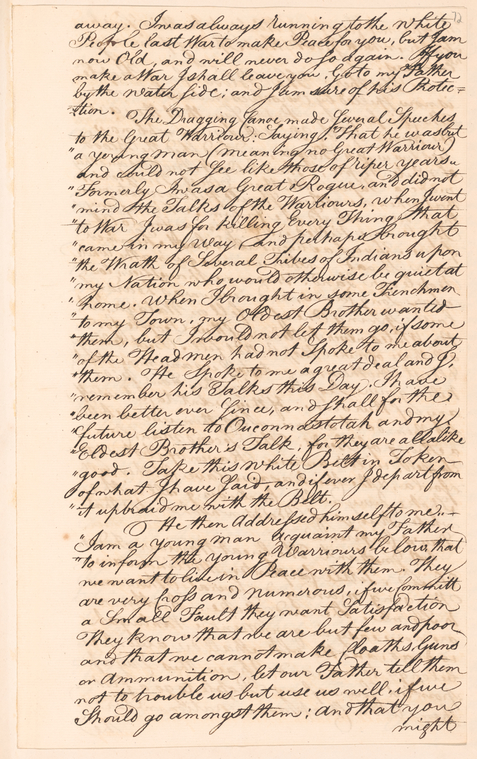 away. I was always running to the white
People last War to make Peace for you, but I am
now Old, and will never do so again. If you
make a War I shall leave you, & go to my Father
by the water side; and I am sure of his Protec=
tion.
The Dragging Canoe made Several Speeches
to the Great Warriour; Saying, "That he was but
"a young man (meaning no Great Warriour)
"and could not See like those of riper years.
"Formerly I was a Great Rogue, and did not
"mind the Talks of the Warriours, when I went
"to War I was for killing Every Thing that
"came in my Way and perhaps brought
"the Wrath of Several Tribes of Indians upon
"my Nation who would otherwise be quiet at
"home. When I brought in some Frenchmen
"to my Town, my Oldest Brother wanted
"them, but I would not let them go, if some
"of the Headmen had not Spoke to me about
"them. He Spoke to me a great deal and I
"remember his Talks this Day. I have
"been better ever Since, and shall for the
"future listen to Ouconnastotah and my
"Eldest Brother's Talk, for they are all alike
"good. Take this White Belt in Token
"of what I have Said, and if ever I depart from
"it upbraid me with the Belt.
He then Addressed himself to me.
"I am a young man Acquaint my Father
"to inform the young Warriours below, that
we want to live in Peace with them. They
are very Cross and numerous, if we Committ
a Small Fault they want Satisfaction
They know that we are but few and poor
and that we cannot make Cloaths, Guns
or Ammunition, let our Father tell them
not to trouble us but use us well, if we
Should go amongst them; and that you
might